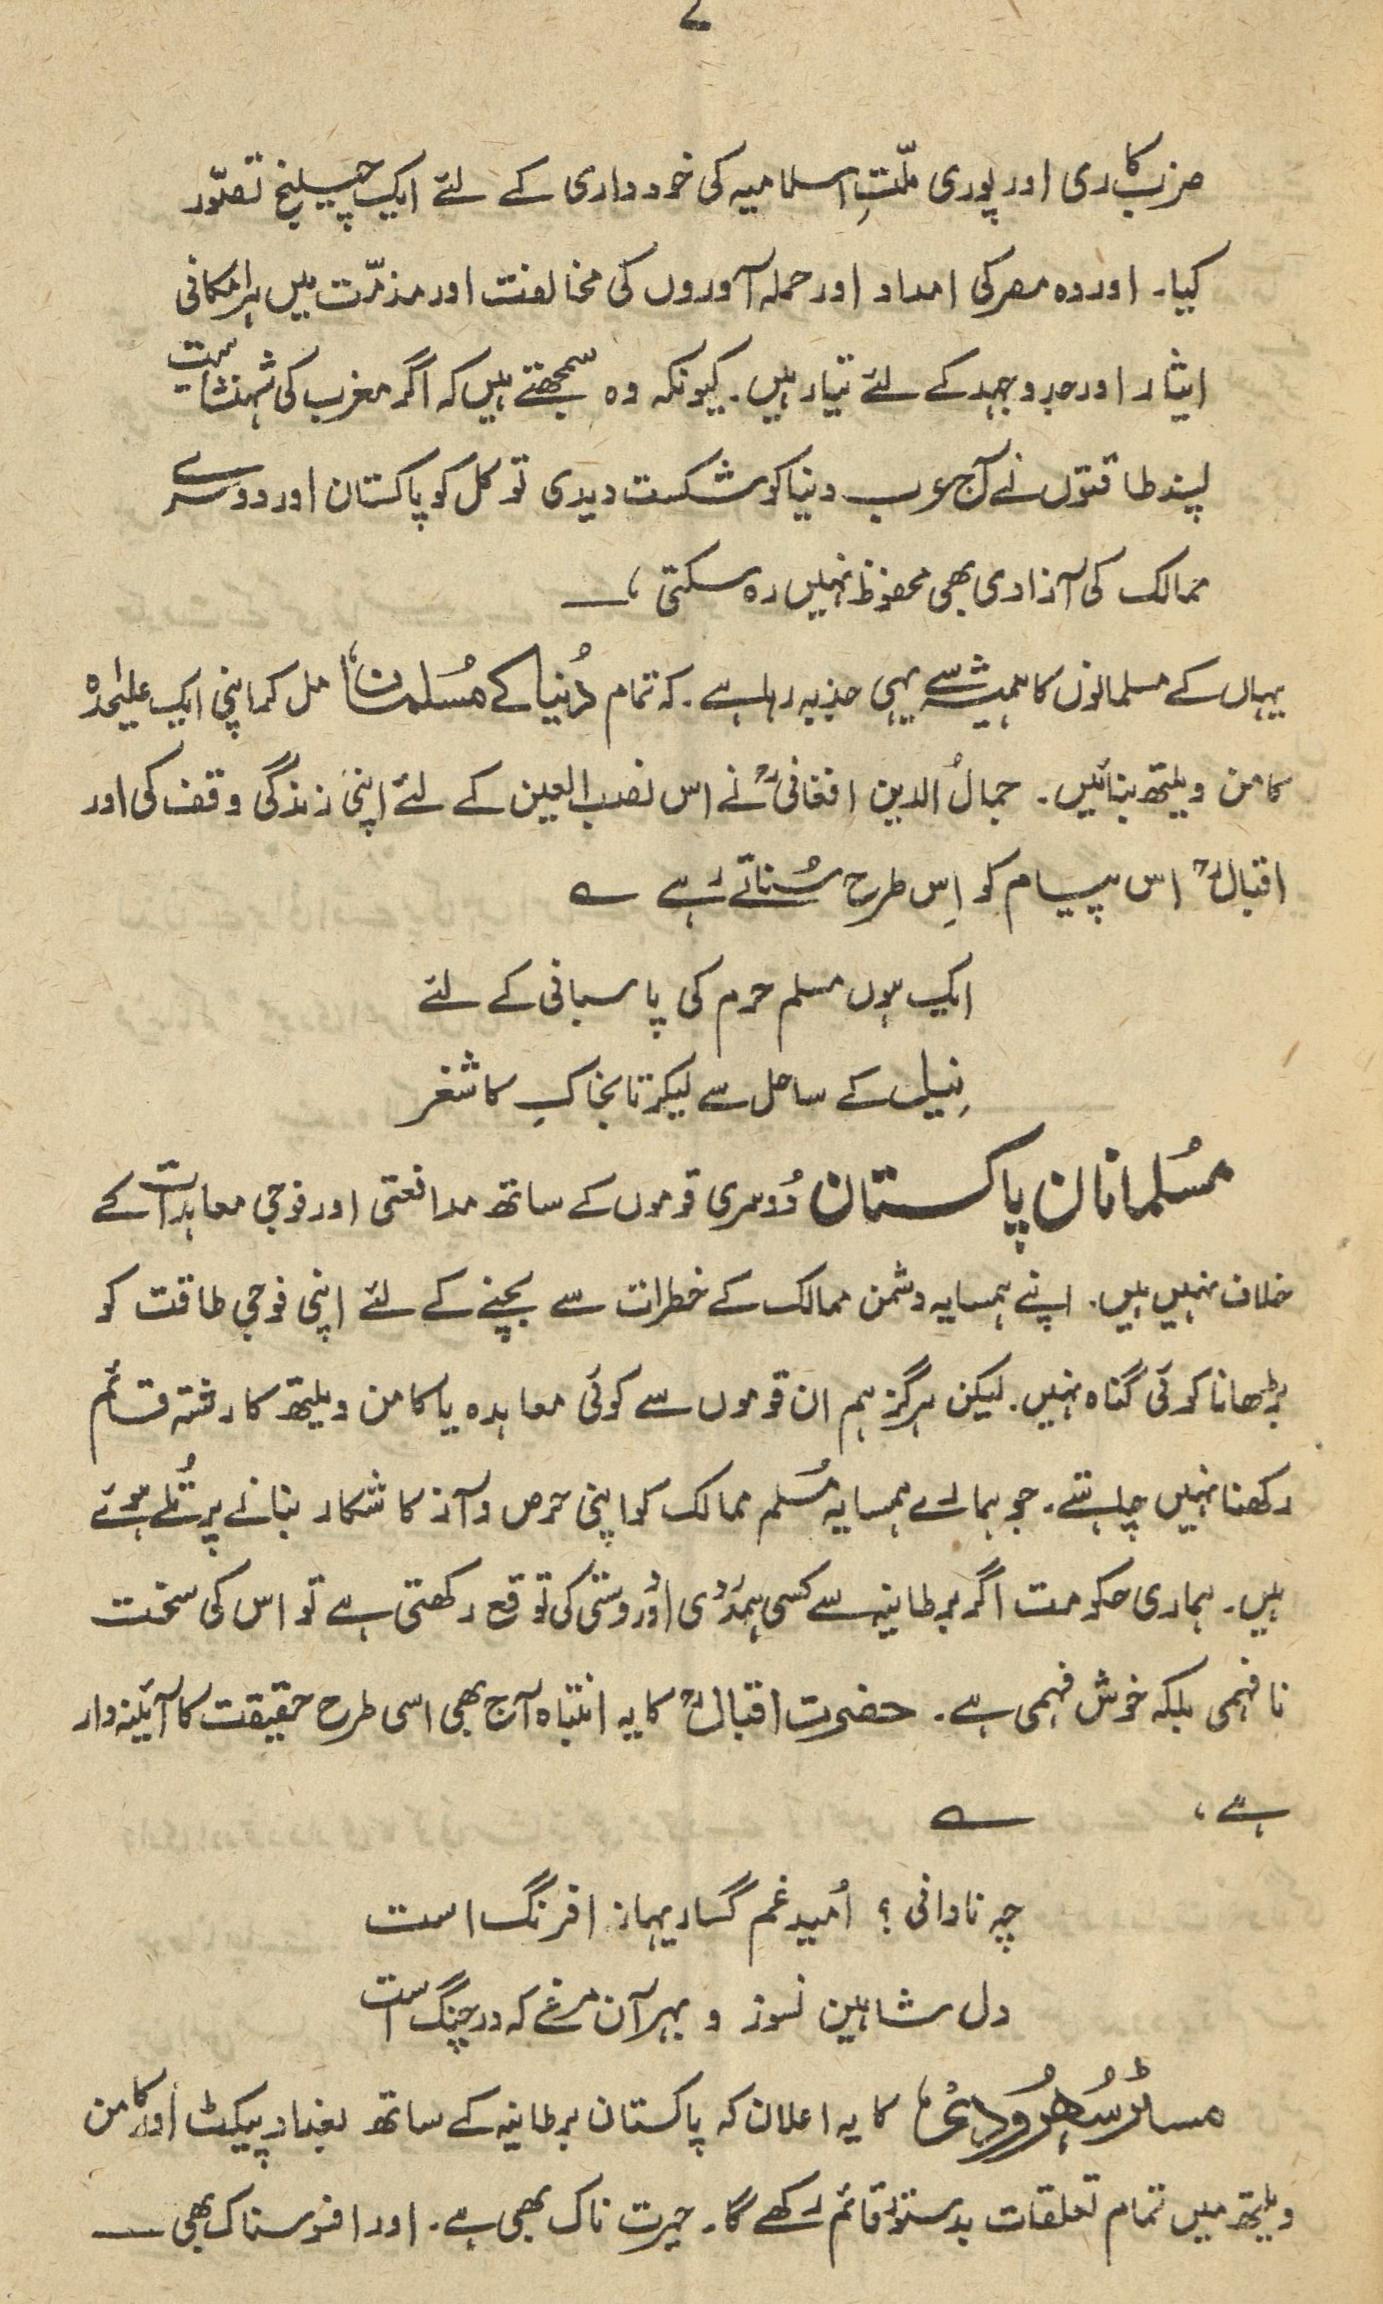 ۷
ضرب کاری اور پوری ملّتِ اسلامیہ کی خود داری کے لئے ایک چیلینج تصوّر
کیا۔ اور وہ مصر کی امداد اور حملہ آوروں کی مخالفت اور مذمّت میں ہر امکانی
ایثار اور جدوجہد کے لئے تیار ہیں۔ کیونکہ وہ سمجھتے ہیں کہ اگر مغرب کی شہنشاہیت
پسند طاقتوں نے آج عرب دنیا کو شکست دیدی تو کل کو پاکستان اور دوسرے
ممالک کی آزادی بھی محفوظ نہیں رہ سکتی،
یہاں کے مسلمانوں کا ہمیشہ سے یہی جذبہ رہا ہے۔ کہ تمام دُنیا کے مُسلمان، مل کر اپنی ایک علیٰحدہ
کامن ویلتھ بنائیں۔ جمالُ الدین افغانیؒ نے اس نصب العین کے لئے اپنی زندگی وقف کی اور
اقبالؒ اس پیام کو اِس طرح سُناتے رہے ؎
ایک ہوں مسلم حرم کی پاسبانی کے لئے
نِیل کے ساحل سے لیکر تا بخاکِ کاشغر
مسُلمانان پاکستان دُوسری قوموں کے ساتھ مدافعتی اور فوجی معاہدات کے
خلاف نہیں ہیں۔ اپنے ہمسایہ دشمن ممالک کے خطرات سے بچنے کے لئے اپنی فوجی طاقت کو
بڑھانا کوئی گناہ نہیں۔ لیکن ہرگز ہم ان قوموں سے کوئی معاہدہ یا کامن ویلیتھ کا رشتہ قائم
رکھنا نہیں چاہتے۔ جو ہمارے ہمسایہ مُسلم ممالک کو اپنی حرص و آز کا شکار بنانے پر تُلے ہوئے
ہیں۔ ہماری حکومت اگر برطانیہ سے کسی ہمدردی اور دوستی کی توقع رکھتی ہے تو اس کی سخت
نا فہمی بلکہ خوش فہمی ہے۔ حضرت اقبالؒ کا یہ انتباہ آج بھی اسی طرح حقیقت کا آئینہ دار
ہے، ؎
چہ نادانی؟ اُمید غم گساریہا ز افرنگ است
دل شاہین نسوز و بہر آن مرغے کہ در چنگ است
مسٹر سُہرُوردی، کا یہ اعلان کہ پاکستان برطانیہ کے ساتھ بغداد پیکٹ اور کامن
ویلیتھ میں تمام تعلقات بدستور قائم رکھے گا۔ حیرت ناک بھی ہے۔ اور افسوسناک بھی